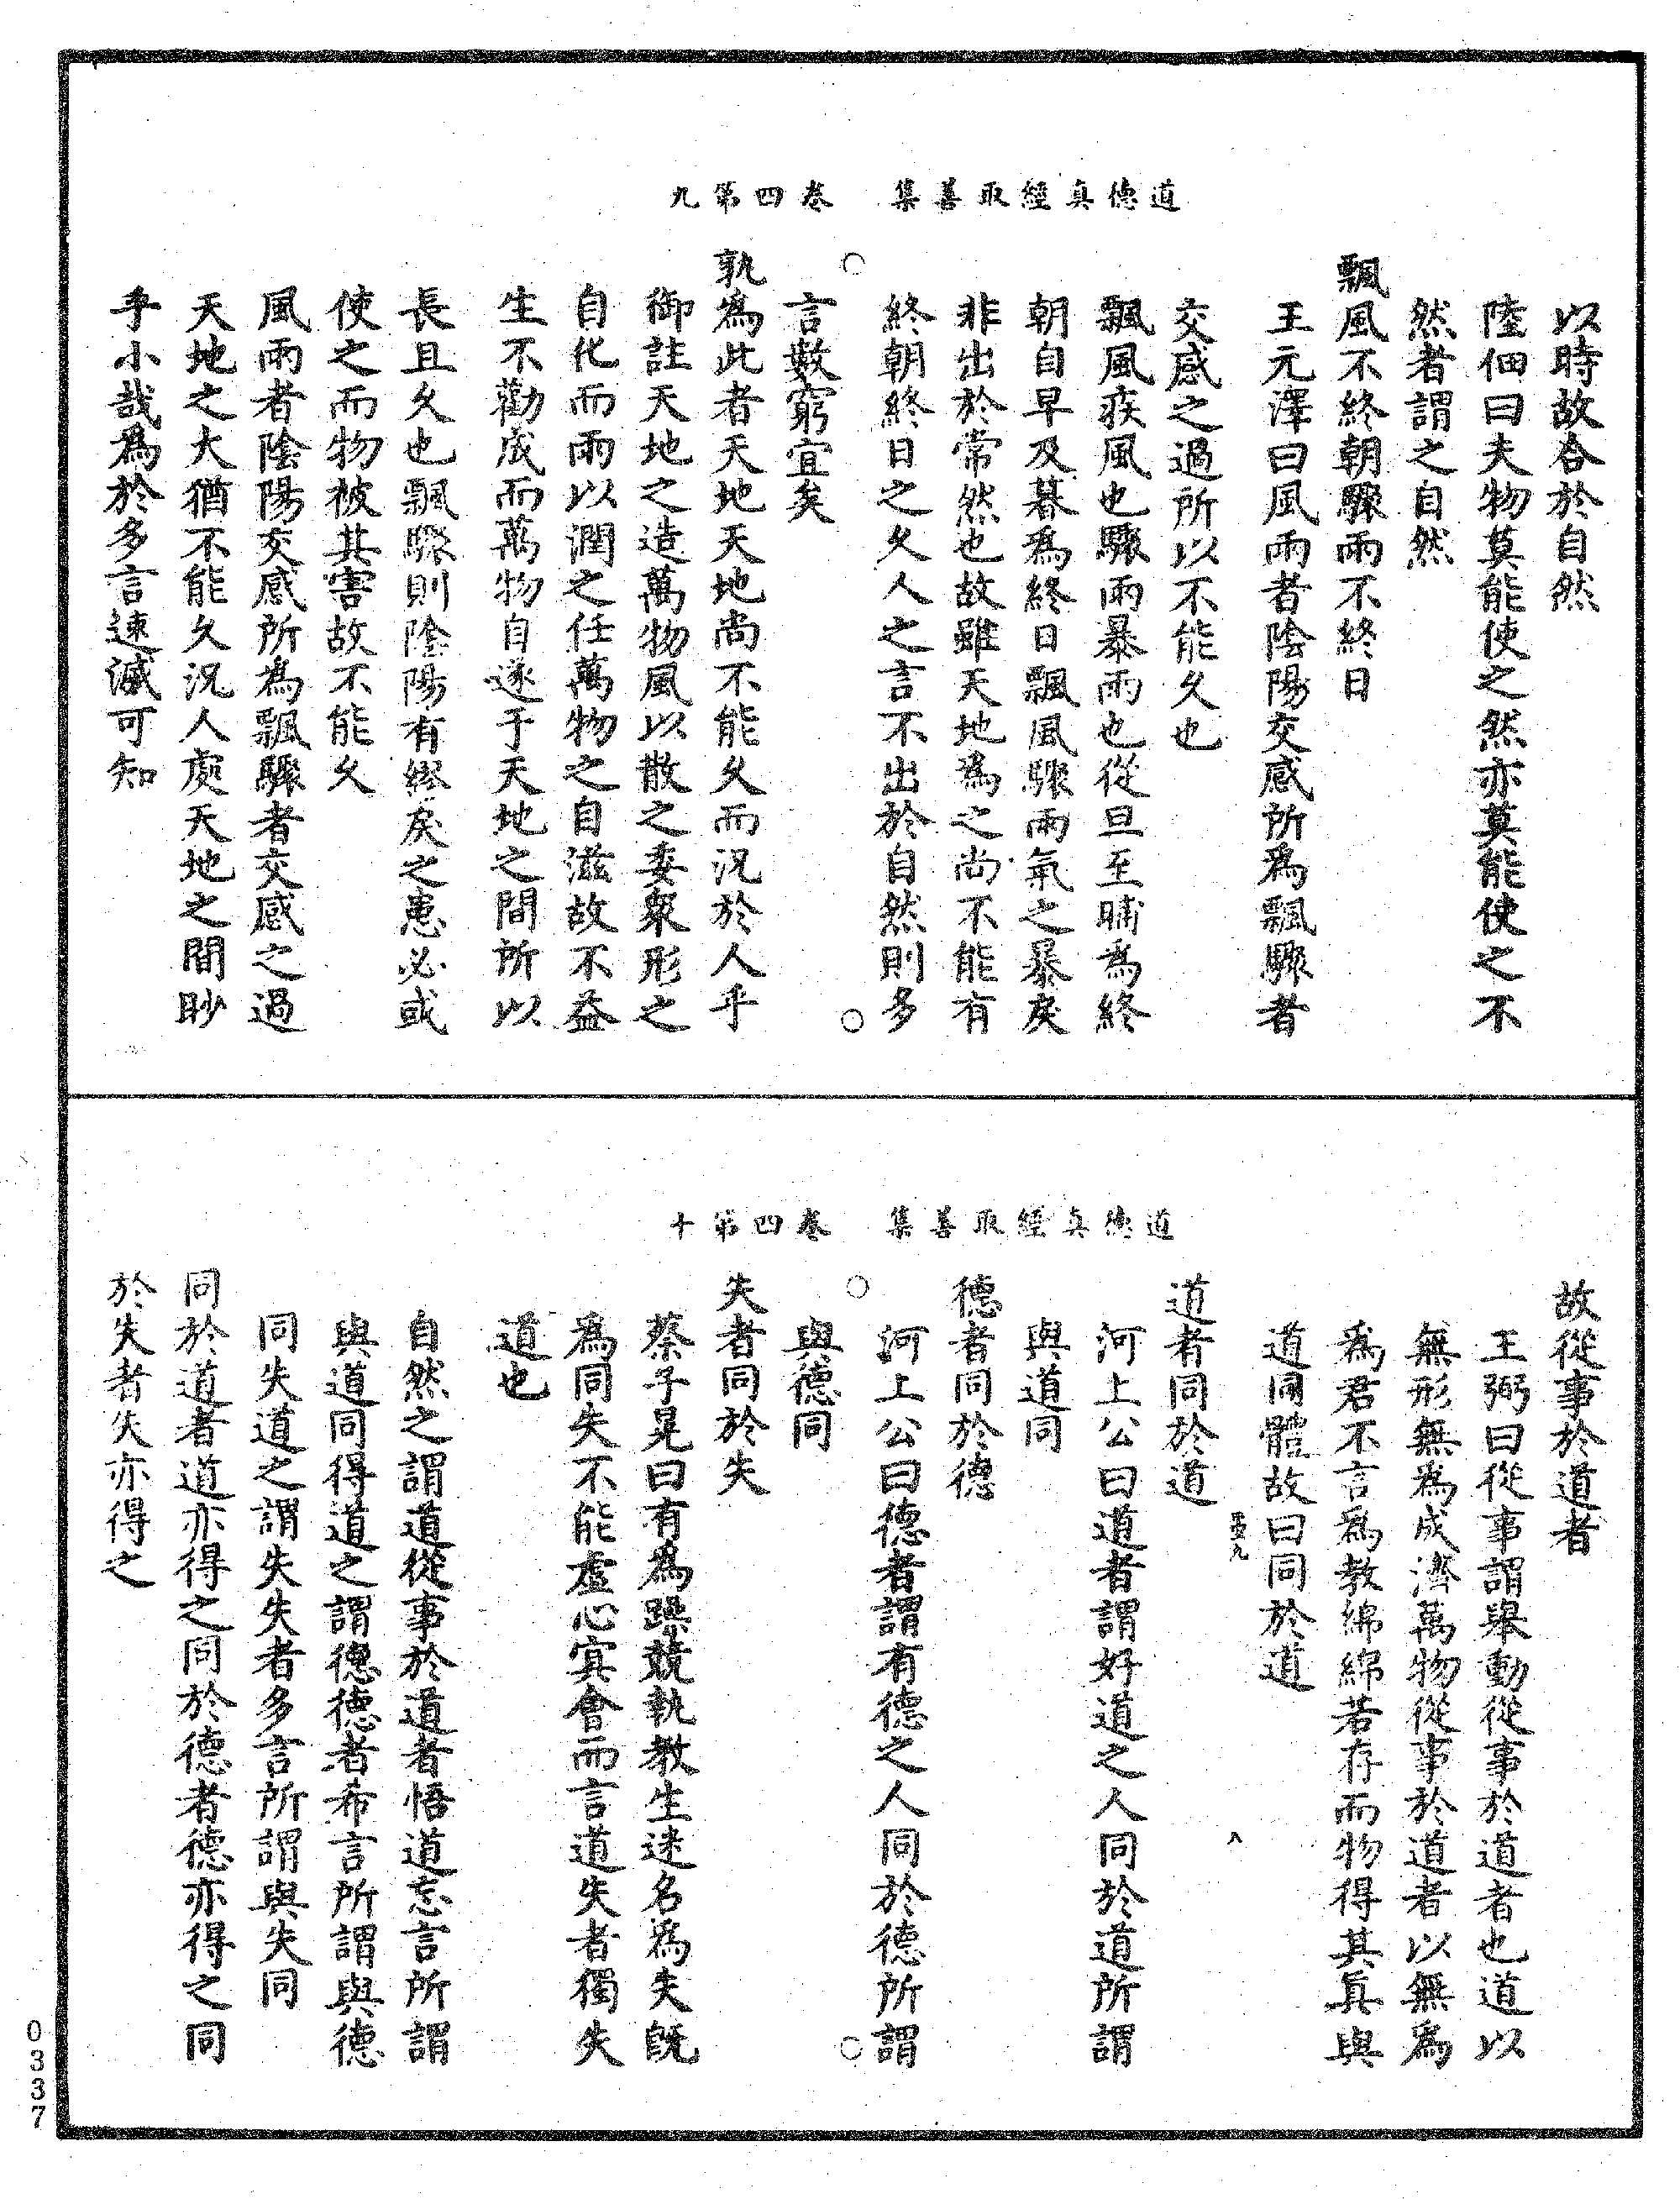 道德真經取善集　卷四第九
以時故合於自然
陸佃曰夫物莫能使之然亦莫能使之不
然者謂之自然
飄風不終朝驟雨不終日
王元澤曰風雨者陰陽交感所爲飄驟者
交感之過所以不能久也
飄風疾風也驟雨暴雨也從旦至晡爲終
朝自早及暮爲終日飄風驟雨氣之暴戾
非出於常然也故雖天地爲之尚不能有
終朝終日之久人之言不出於自然則多
言數窮宜矣
孰爲此者天地天地尚不能久而況於人乎
御註天地之造萬物風以散之委衆形之
自化而雨以潤之任萬物之自滋故不益
生不勸成而萬物自遂于天地之間所以
長且久也飄驟則陰陽有繆戾之患必或
使之而物被其害故不能久
風雨者陰陽交感所爲飄驟者交感之過
天地之大猶不能久況人處天地之間眇
乎小哉爲於多言速滅可知
道德真經取善集　卷四第十
故從事於道者
王弼曰從事謂舉動從事於道者也道以
無形無爲成濟萬物從事於道者以無爲
爲君不言爲教綿綿若存而物得其真與
道同體故曰同於道
八
道者同於道
河上公曰道者謂好道之人同於道所謂
與道同
德者同於德
河上公曰德者謂有德之人同於德所謂
與德同
失者同於失
蔡子晃曰有爲躁競執教生迷名爲失旣
爲同失不能虛心寞會而言道失者獨失
道也
自然之謂道從事於道者悟道忘言所謂
與道同得道之謂德德者希言所謂與德
同失道之謂失失者多言所謂與失同
同於道者道亦得之同於德者德亦得之同
於失者失亦得之
0337